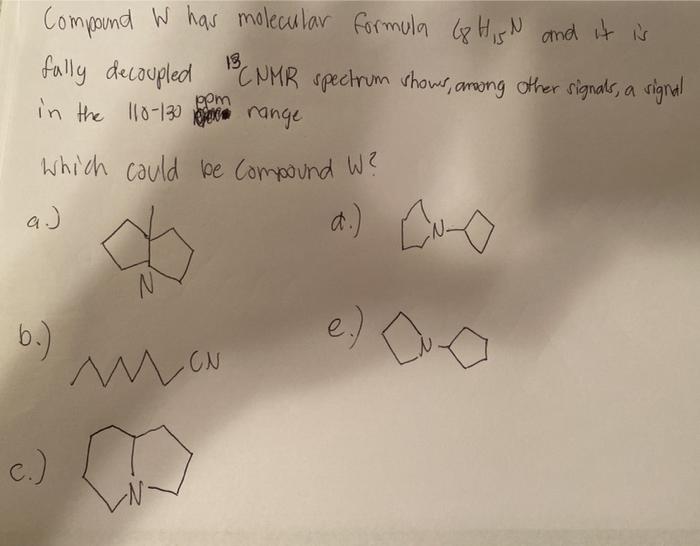 Compound W has molecular formula C8H15N and it is
fully decoupled 13CNMR spectrum shows, among other signals, a signal
in the 110-130 ppm range
Which could be Compound W?
a.)
N
b.)
CN
c.)
N
d.)
N
e.)
N